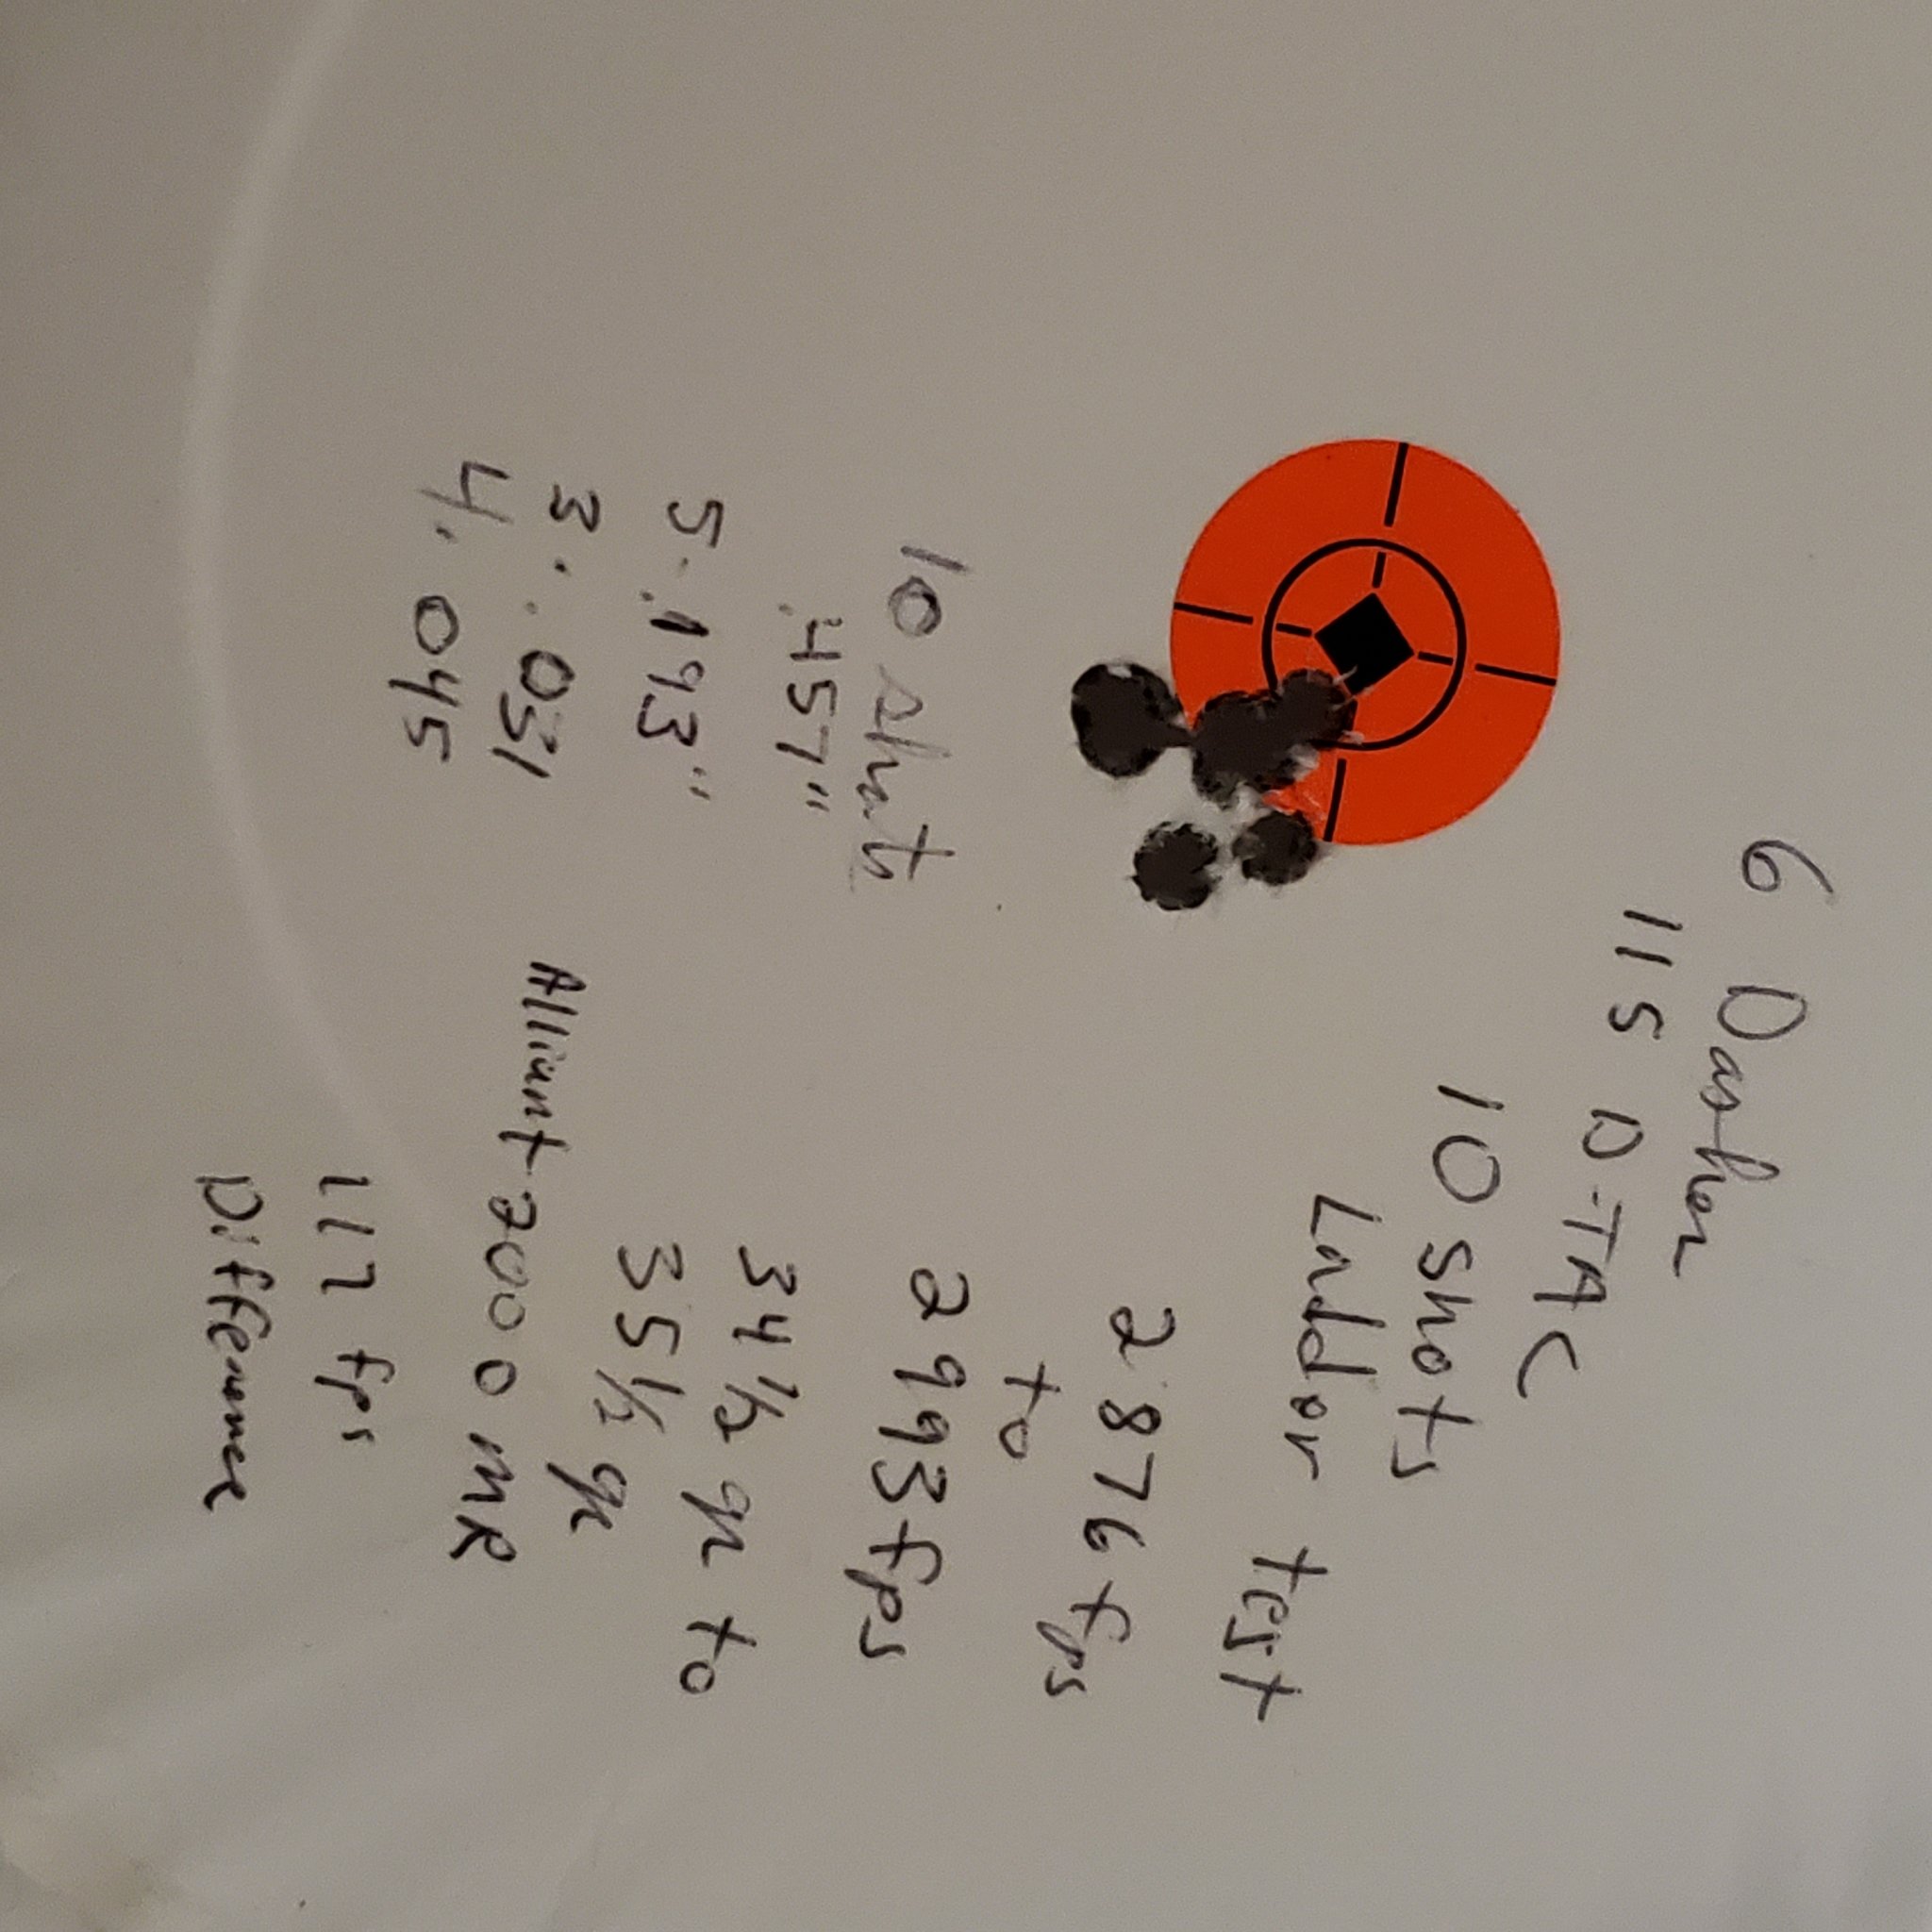 6 Dasher
115 D-TAC
10 shots
Indor test
2876 fps
to
2993 fps
34 1/2 gr to
35 1/2 gr
Alliant 2000 MR
117 fps
Difference
10 shots
.457"
5. .193"
3. .031
4. 045